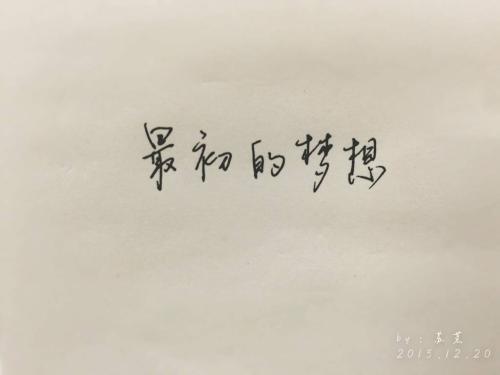 最初的梦想
by：苏芸
2015.12.20